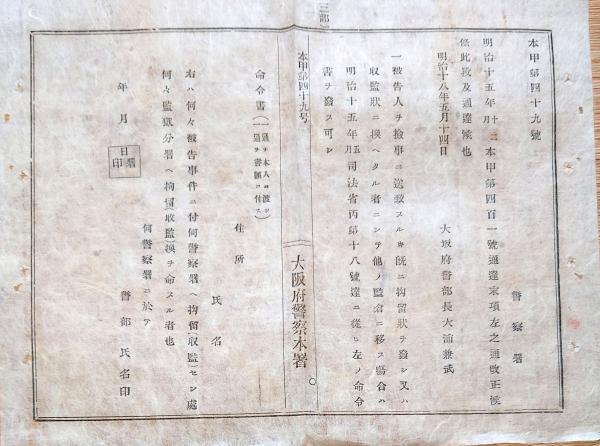 本甲第四十九號
警察署
明治十五年十二月本甲第四百一號通達末項左之通改正候
條此段及通達候也
明治十八年五月十四日
大坂府警部長大浦兼武
一被告人ヲ撿事ニ送致スルキ既ニ拘留狀ヲ發シ又ハ
收監狀ニ換ヘタル者ニシテ他ノ監倉ニ移ス塲合ハ
明治十五年五月司法省丙第十八號達ニ從ヒ左ノ命令
書ヲ發ス可シ
三部
本甲第四十九号
大阪府警察本署
命令書(一通ヲ本人ニ渡シ一通ヲ書類ニ付ス)
住所
氏名
右ハ何々被告事件ニ付何警察署ヘ拘留(收監)セシ處
何々監獄分署ヘ拘留(收監)換ヲ命スル者也
年月日
署印
何警察署ニ於テ
警部氏名印